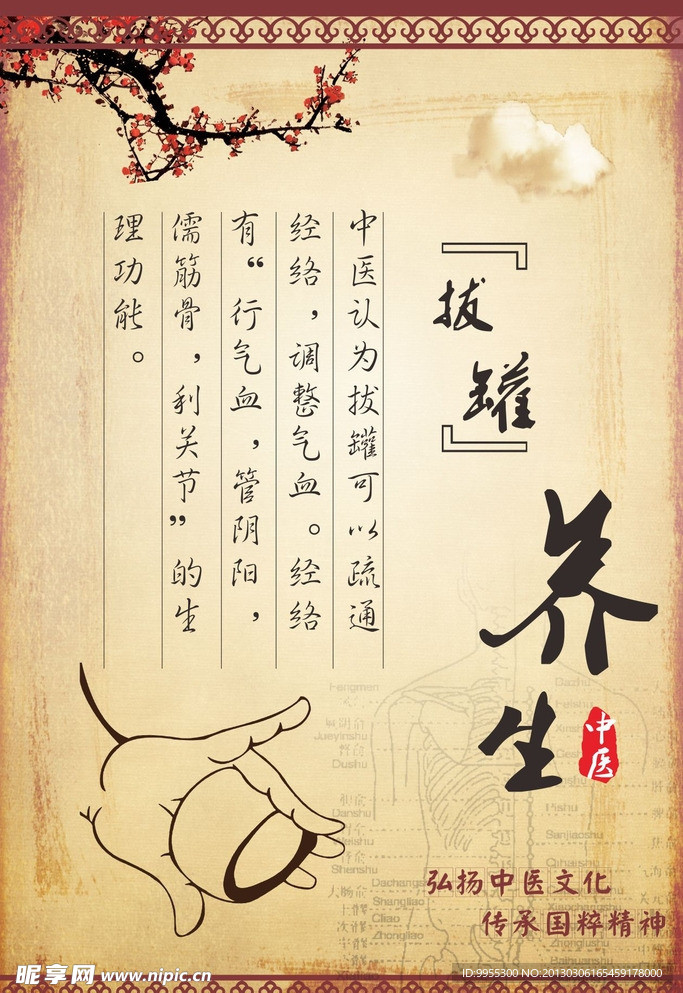 『拔罐』
养生
中医
中医认为拔罐可以疏通
经络，调整气血。经络
有“行气血，管阴阳，
儒筋骨，利关节”的生
理功能。
Jueyinshu
Dushu
Danshu
Weishu
Shenshu
Dachangshu
Shangliao
Ciliao
Zhongliao
Pishu
Sanjiaoshu
Qihaishu
Xiaochangshu
Zhonglushu
Baihuanshu
弘扬中医文化
传承国粹精神
昵享网 www.nipic.cn
ID:9955300 NO:20130306165459178000